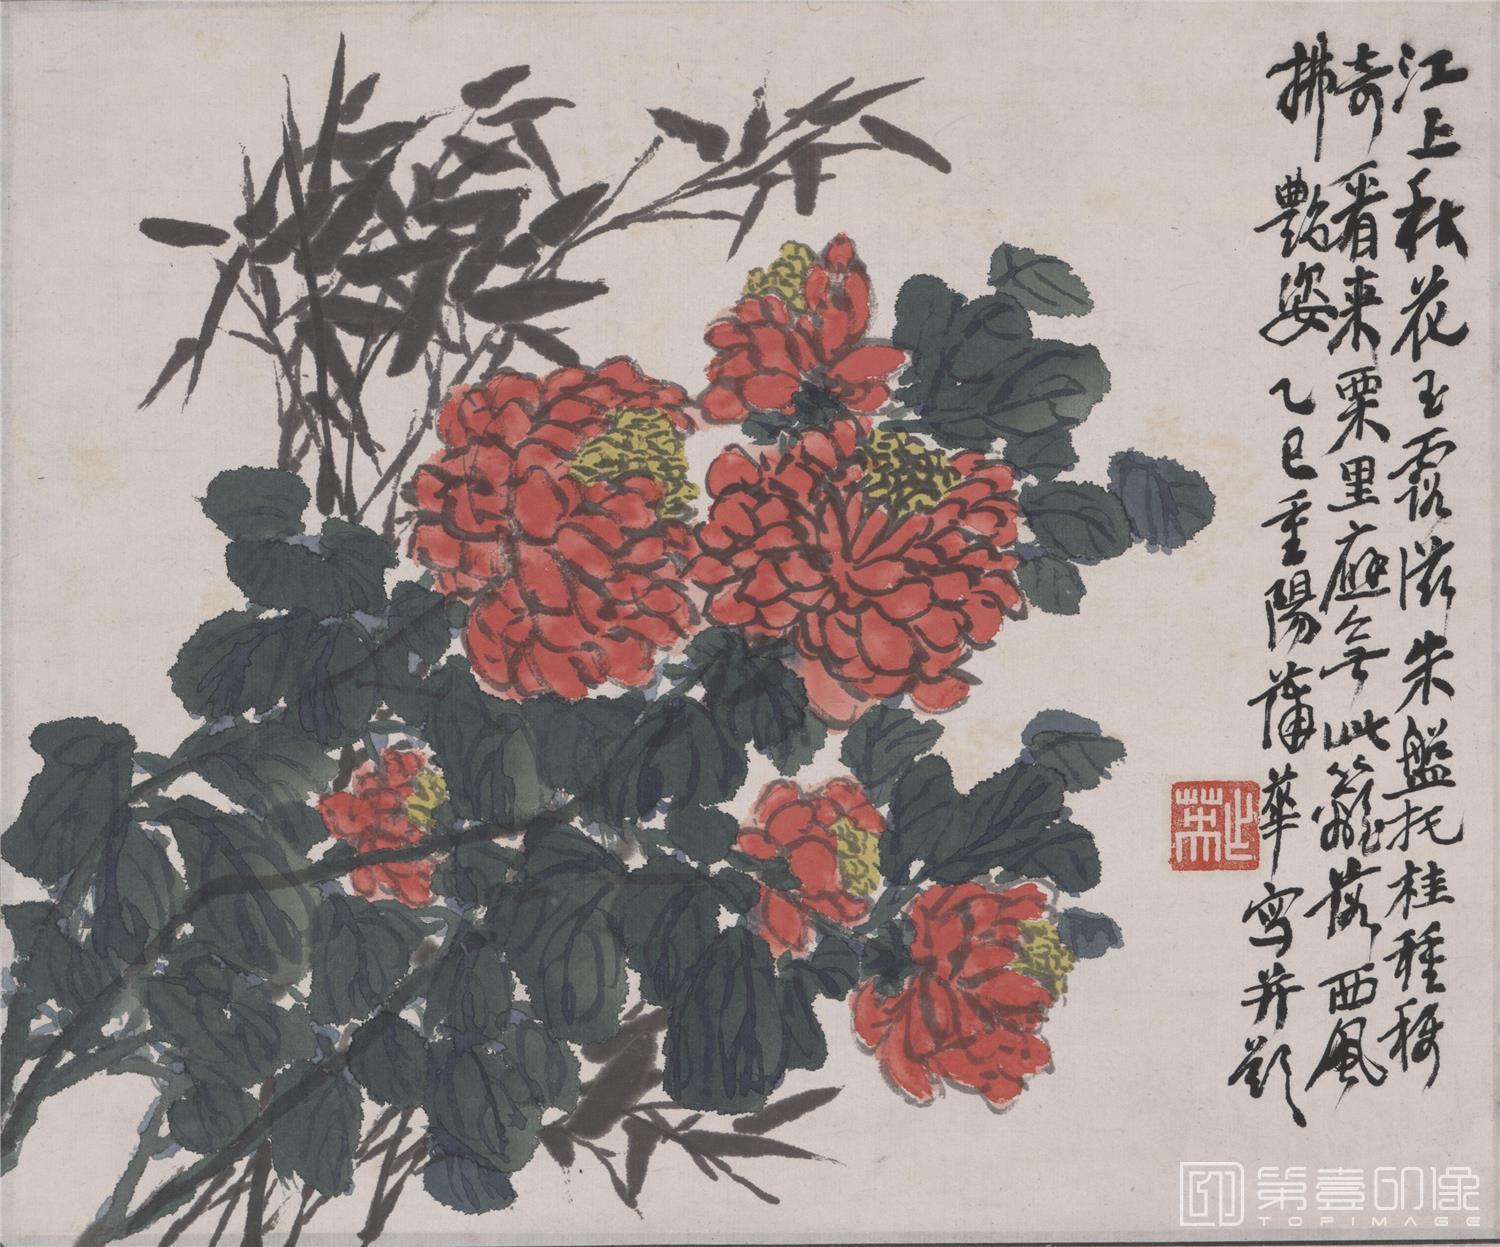 江上秋花玉露滋朱盤托桂種移
奇看来栗里庭無此籬落西風
拂艷姿 乙巳重陽蒲華寫并題
第壹印像
TOPIMAGE